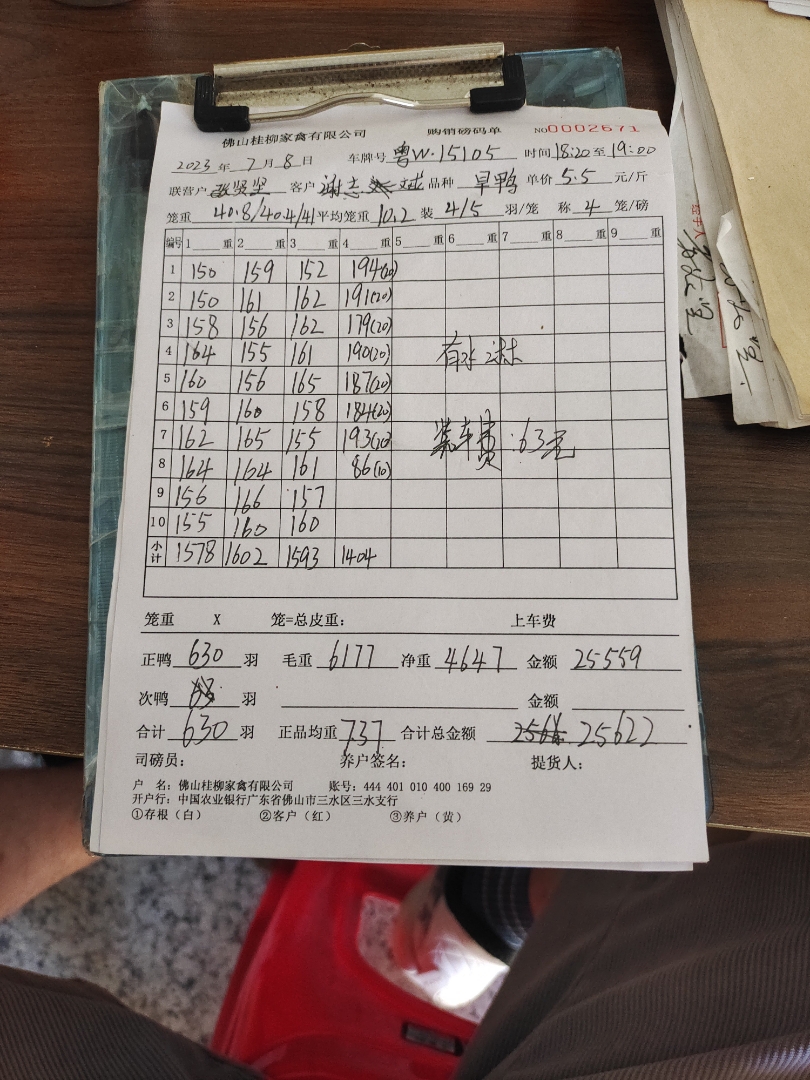 佛山桂柳家禽有限公司 购销磅码单 NO0002671
2023年7月8日 车牌号 粤W·15105 时间18:20至19:00
联营户 客户 谢志斌 品种 旱鸭 单价5.5元/斤
笼重 40.8/40.4/41 平均笼重10.2装4/5羽/笼 称4笼/磅
编号 1 重 2 重 3 重 4 重 5 重 6 重 7 重 8 重 9 重
1 150 159 152 194(20)
2 150 161 162 191(20)
3 158 156 162 179(20)
4 164 155 161 190(20) 有水淋
5 160 156 165 187(20)
6 159 160 158 184(20)
7 162 165 155 193(20) 装车费:63元
8 164 164 161 86(10)
9 156 166 157
10 155 160 160
小计 1578 1602 1593 1404
笼重 X 笼=总皮重: 上车费
正鸭 630 羽 毛重 6177 净重 4647 金额 25559
次鸭 羽 金额
合计 630 羽 正品均重 7.37 合计总金额 25622
司磅员: 养户签名: 提货人:
户 名: 佛山桂柳家禽有限公司 账号: 444 401 010 400 169 29
开户行: 中国农业银行广东省佛山市三水区三水支行
①存根(白) ②客户(红) ③养户(黄)